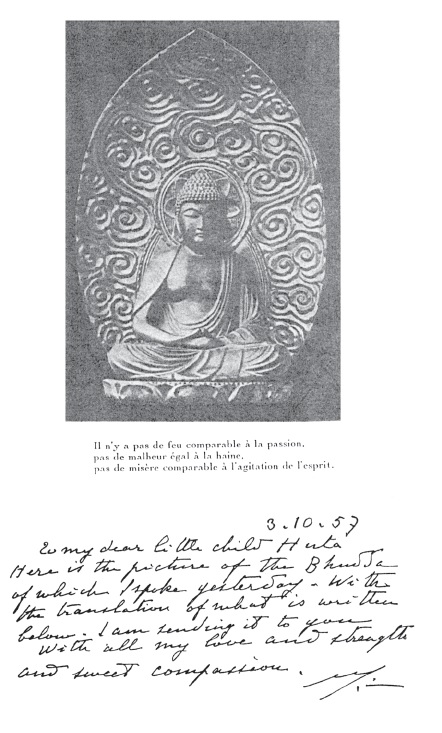 Il n'y a pas de feu comparable à la passion,
pas de malheur égal à la haine,
pas de misère comparable à l'agitation de l'esprit.
3.10.57
To my dear little child Huta
Here is the picture of the Bhudda
of which I spoke yesterday - With
the translation of what is written
below. I am sending it to you
With all my love and strength
and sweet compassion.